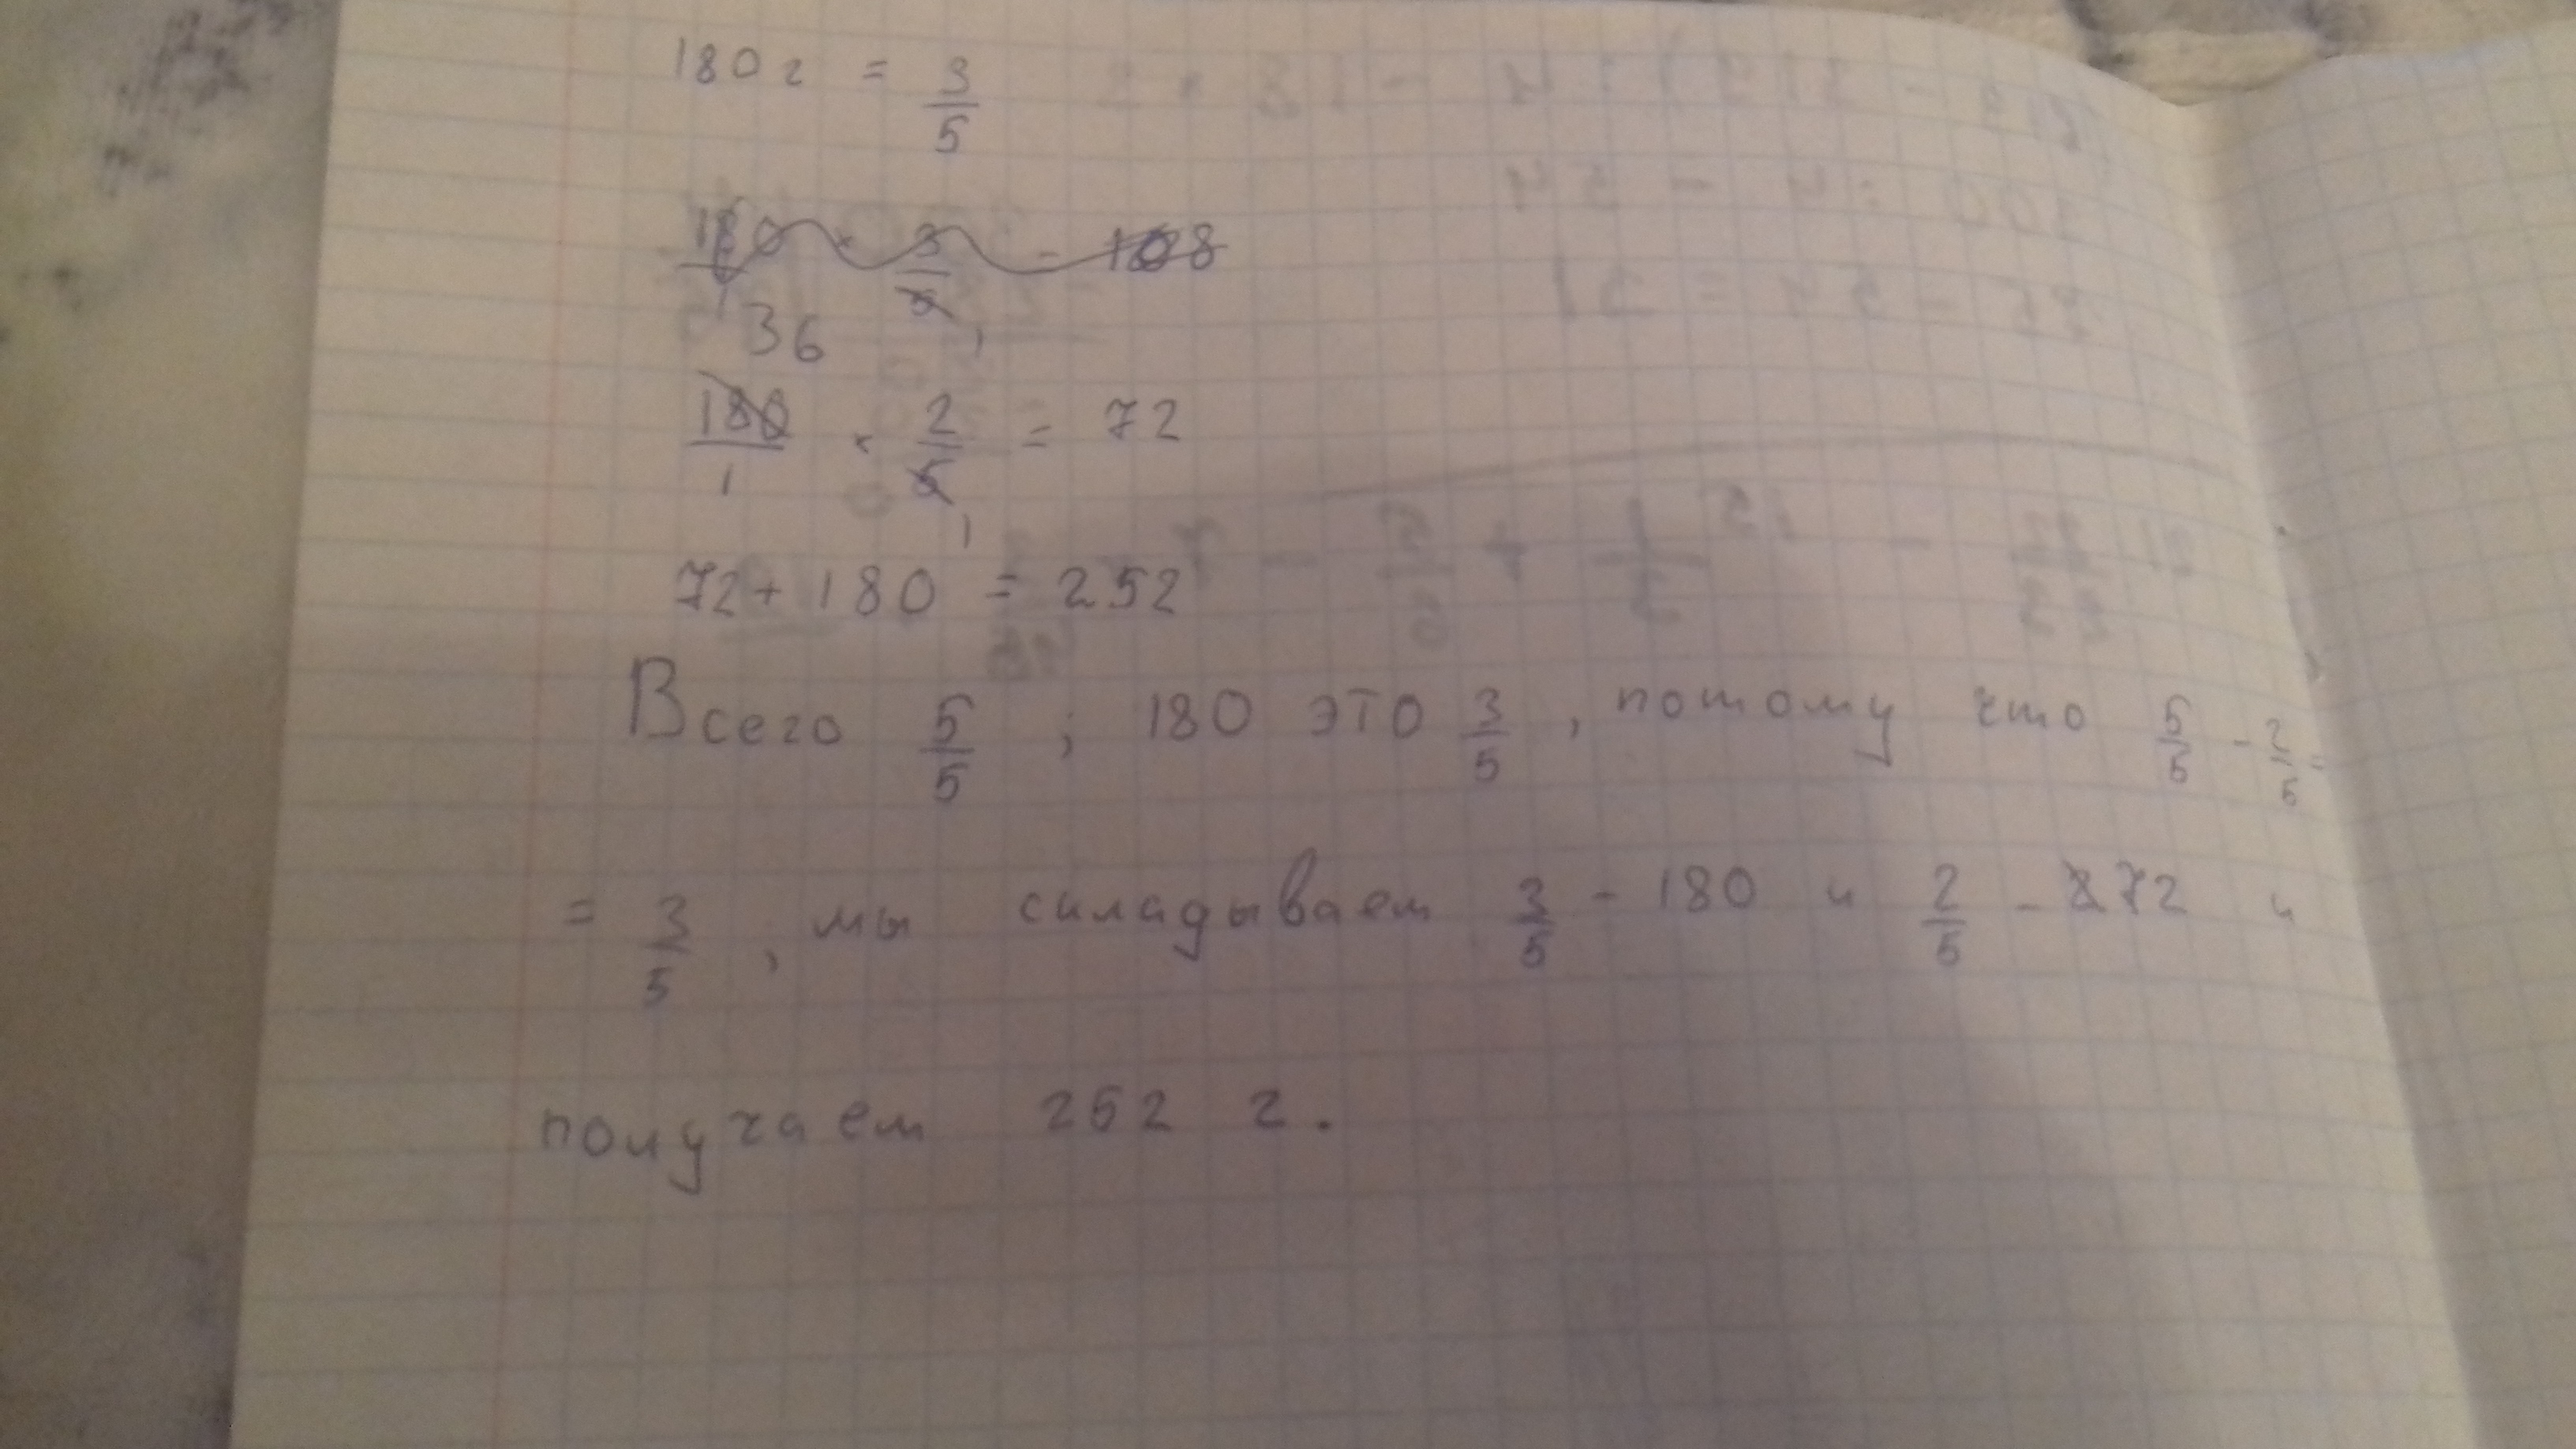 180 г = 3/5
180/1 × 3/5 = 108
36
180/1 × 2/5 = 72
1
72 + 180 = 252
Всего 5/5 ; 180 это 3/5 , потому что 5/5 - 2/5 =
= 3/5 , мы складываем 3/5 - 180 и 2/5 - 72 и
получаем 252 г.